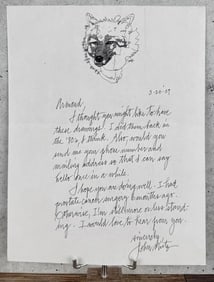 3-20-19
Armond,
I thought you might like to have
these drawings. I did them back in
the '80s, I think. Also, would you
send me your phone number and
mailing address so that I can say
hello once in a while.
I hope you are doing well. I had
prostate cancer surgery 6 months ago.
Otherwise, I'm still more or less stand-
ing. I would love to hear from you.
Sincerely,
John